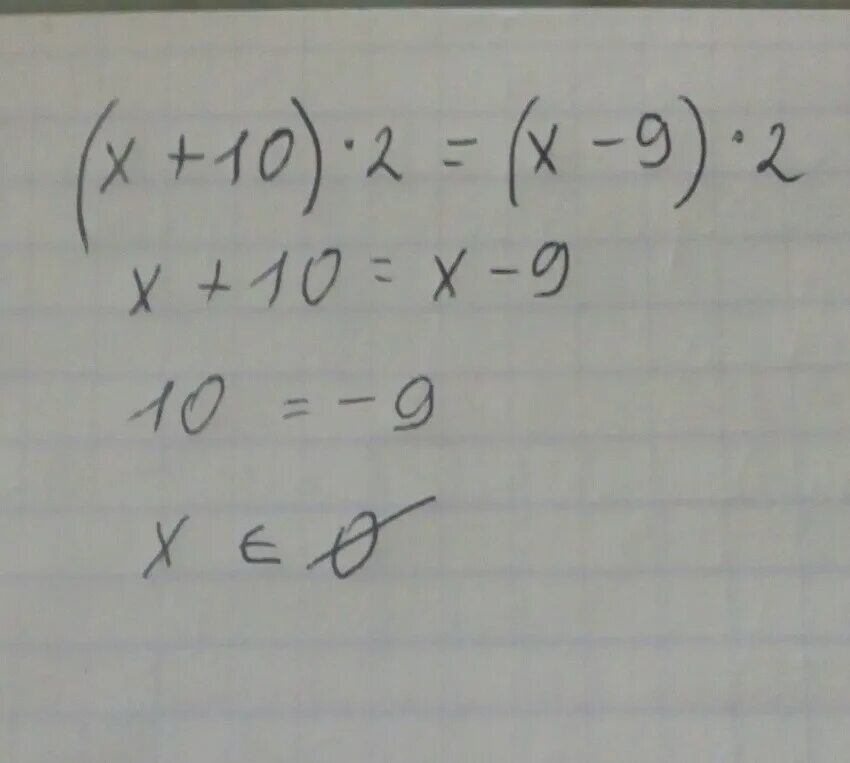 (x + 10) · 2 = (x - 9) · 2
x + 10 = x - 9
10 = - 9
x ∈ ∅